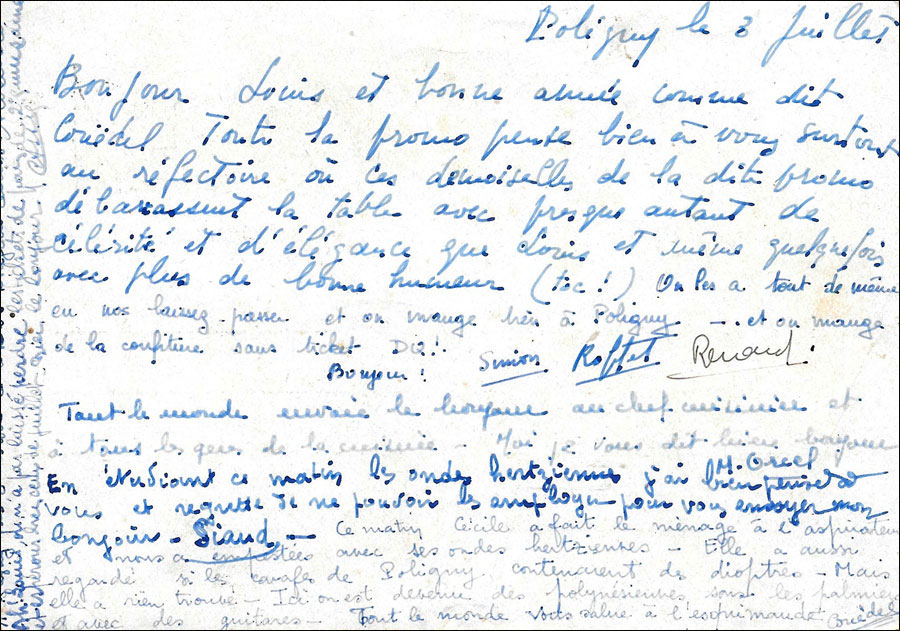 Poligny le 3 juillet
Bonjour Louis et bonne année comme dit
Coriédel Toute la promo pense bien à vous surtout
au réfectoire où ces demoiselles de la dite promo
débarassent la table avec presque autant de
célérité et d'élégance que Louis et même quelquefois
avec plus de bonne humeur (tic!) On les a tout de même
eu nos laissez-passer et on mange bien à Poligny - et on mange
de la confiture sans ticket DQ!
Bonjour! Simon Roffet Renard.
Tout le monde envoie le bonjour au chef cuisinier et
à tous les gens de la cuisine - Moi je vous dit bien bonjour
M. Orcel
En étudiant ce matin les ondes hertziennes j'ai bien pensé à
vous et regretté de ne pouvoir les employer pour vous envoyer mon
bonjour - Siaud -
Ce matin Cécile a fait le ménage à l'aspirateur
et nous a empestées avec ses ondes hertziennes - Elle a aussi
regardé si les carafes de Poligny contenaient des dioptres - Mais
elle a rien trouvé - Ici on est devenu des polynésiennes sous les palmiers
et avec des guitares - Tout le monde vous salue à l'esquimaude Coriédel